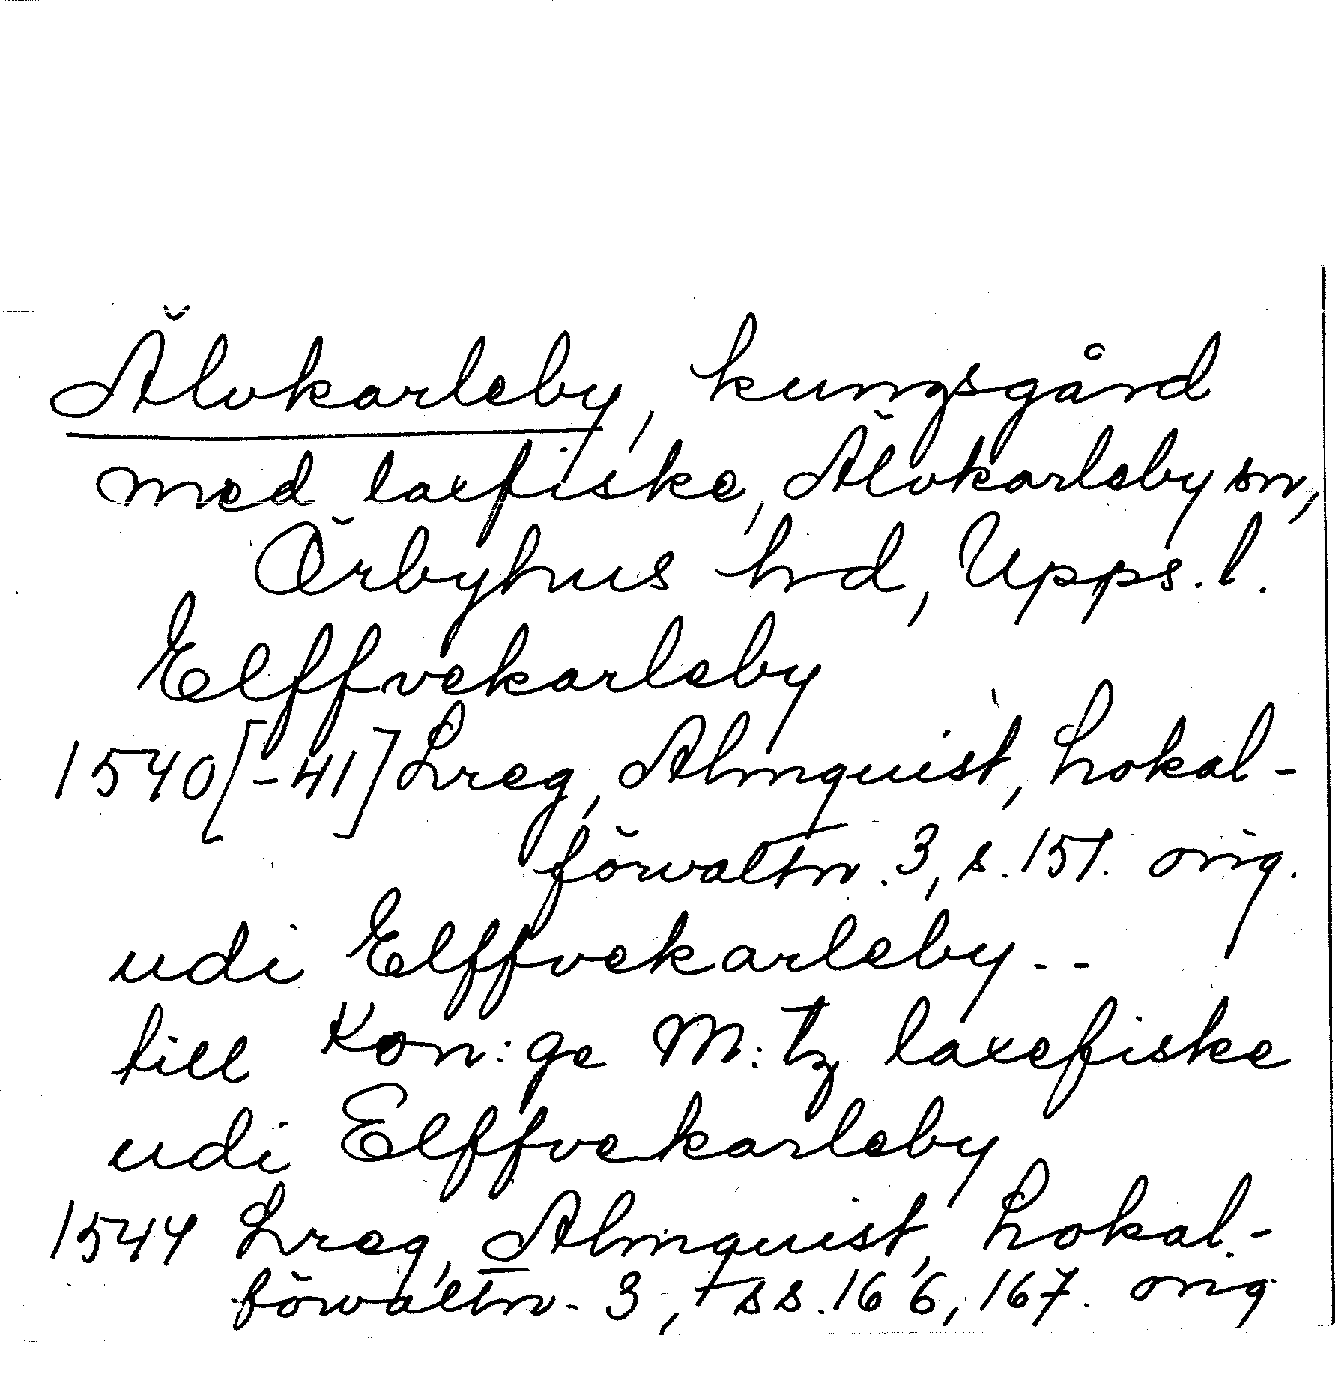 Älvkarleby, kungsgård
med laxfiske, Älvkarleby sn,
Örbyhus hd, Upps. l.
Elffvekarleby
1540[-41] Lreg, Almquist, Lokal-
förvaltn. 3, s. 151. orig.
udi Elffvekarleby - -
till Kon:ge M:tz laxefiske
udi Elffvekarleby
1544 Lreg, Almquist, Lokal-
förvaltn. 3, ss. 166, 167. orig